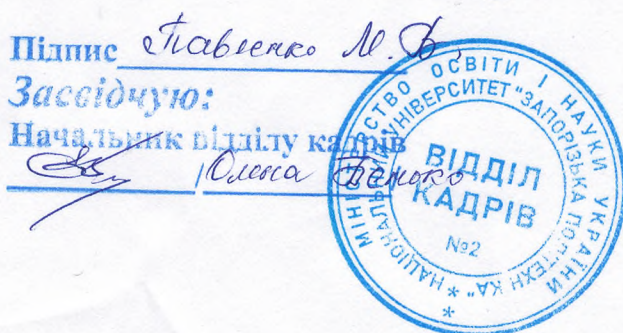 Підпис Павленко М. В.
Засвідчую:
Начальник відділу кадрів
Олена
МІНІСТЕРСТВО ОСВІТИ І НАУКИ УКРАЇНИ
НАЦІОНАЛЬНИЙ УНІВЕРСИТЕТ "ЗАПОРІЗЬКА ПОЛІТЕХНІКА"
ВІДДІЛ
КАДРІВ
№2